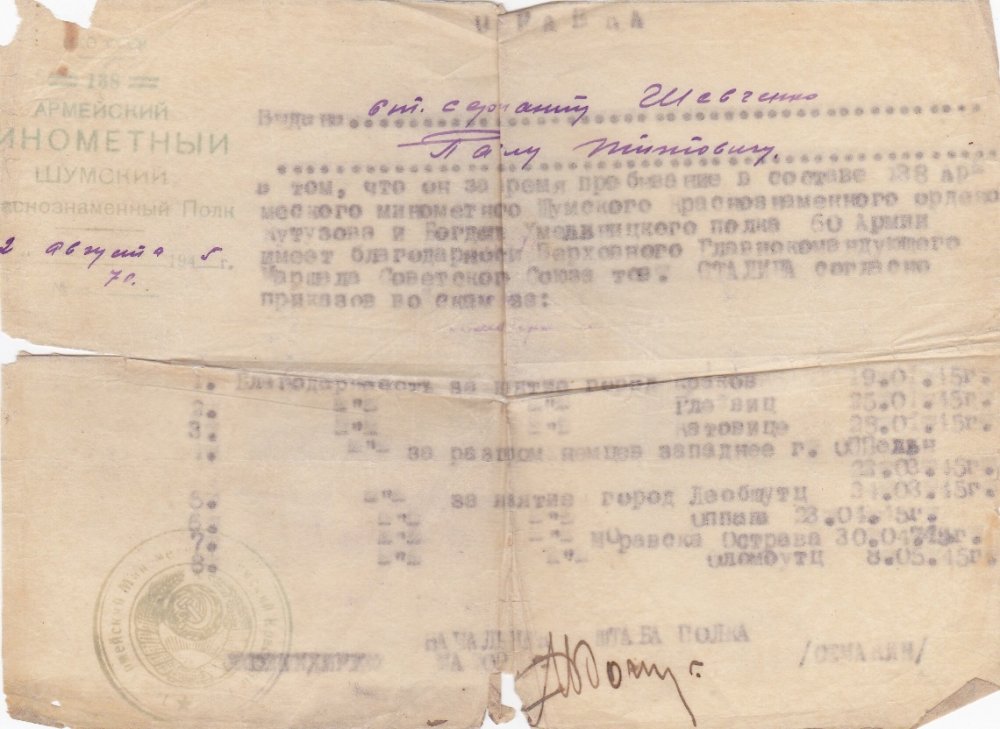 138
АРМЕЙСКИЙ
МИНОМЕТНЫЙ
ШУМСКИЙ
Краснознаменный Полк
2 августа 1945 г.
Выдана ст. сержанту Шевченко
Титовичу.
в том, что он за время пребывание в составе 138 Ар-
мейского минометного Шумского Краснознаменного ордено
Кутузова и Богдан Хмельницкого полка 60 Армии
имеет благодарности Верховного Главнокомандующего
Маршала Советского Союза тов. СТАЛИНА согласно
приказов
1. Благодарность за взятие город Краков 19.01.45г.
2. -"- -"- Глейвиц 25.01.45г.
3. -"- -"- Катовице 28.01.45г.
4. -"- за разгром немцев западнее г. Оппельн
22.03.45г.
5. -"- за взятие город Леобшутц 24.03.45г.
6. -"- -"- Оппава 23.04.45г.
7. -"- -"- Моравска Острава 30.04.45г.
8. -"- -"- Оломоутц 8.05.45г.
НАЧАЛЬНИК ШТАБА ПОЛКА